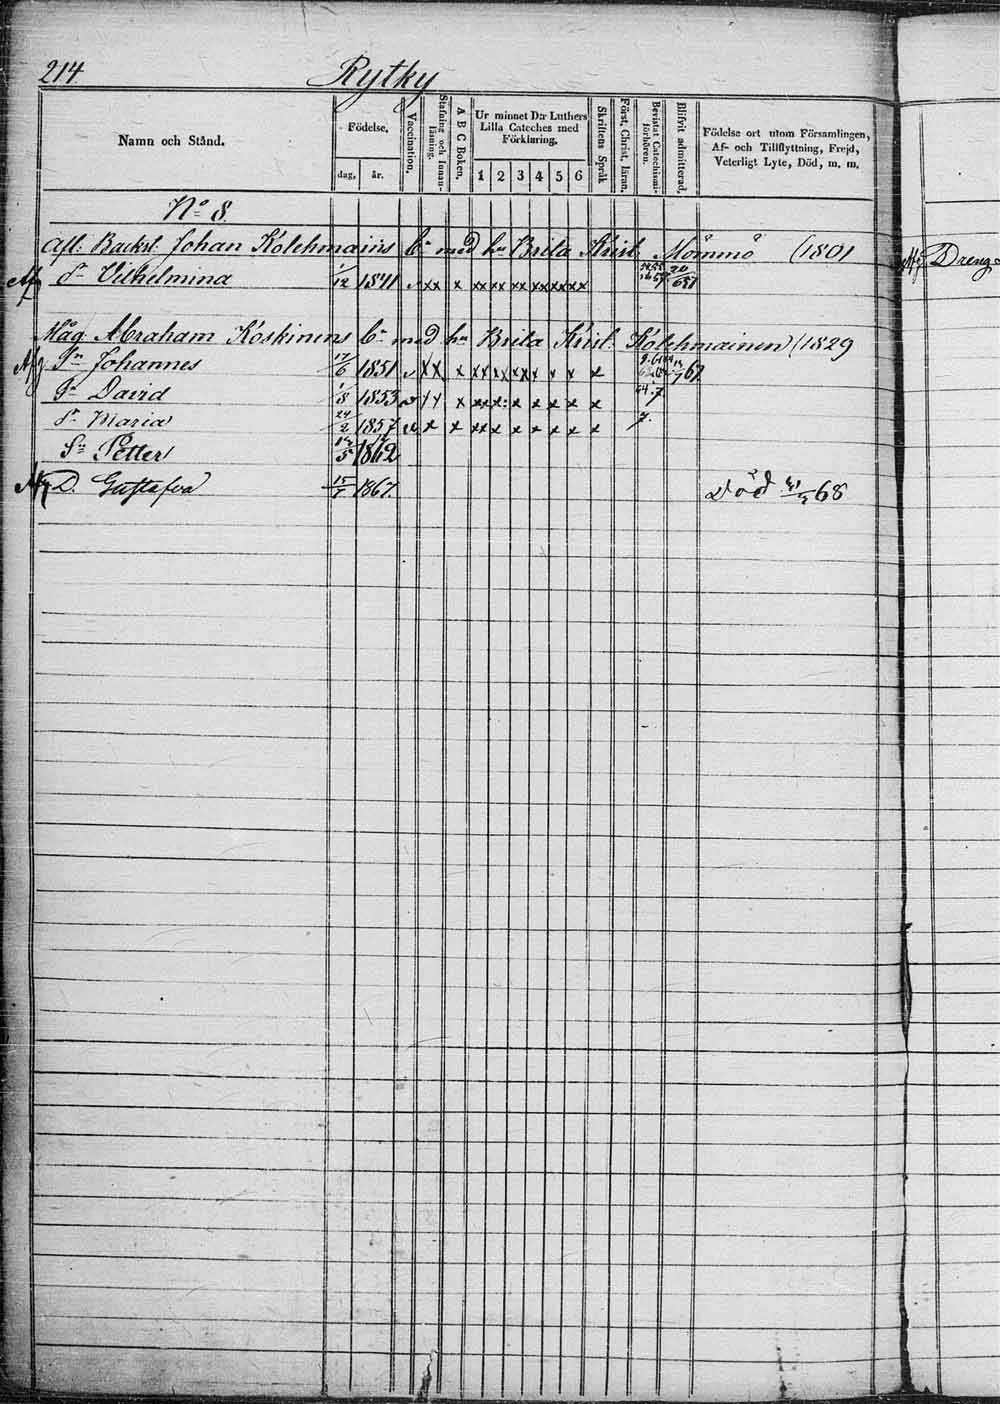 214
Rytky
Namn och Stånd.
Födelse,
dag,
år.
Vaccination.
Stafning och Innanläsning.
A B C Boken.
Ur minnet D:r Luthers
Lilla Cateches med
Förklaring,
1 2 3 4 5 6
Skriftens Språk
Först. Christ. läran.
Bevistat Catechismi-förhören.
Blifvit admitterad.
Födelse ort utom Församlingen,
Af- och Tillflyttning, Frejd,
Veterligt Lyte, Död, m. m.
No 8.
Afl. Backst. Johan Kolehmains bn med hu Brita Krist. Mömmö (1801
Afg Dr Vilhelmina 1/12 1841 v xx x xx xx xx xx xx xx
Afg Dreng
Måg Abraham Koskinens bn med hu Brita Krist. Kolehmainen (1829
Afg Sn Johannes 17/6 1851 v xx x xx xx xx x x x x
Sn David 1/8 1853 x x x x x x x x 7
Dr Maria 24/2 1857 x x xx x x x x x x 7.
Sn Petter 1862
Afg D. Gustafva 15/7 1867. Död 68